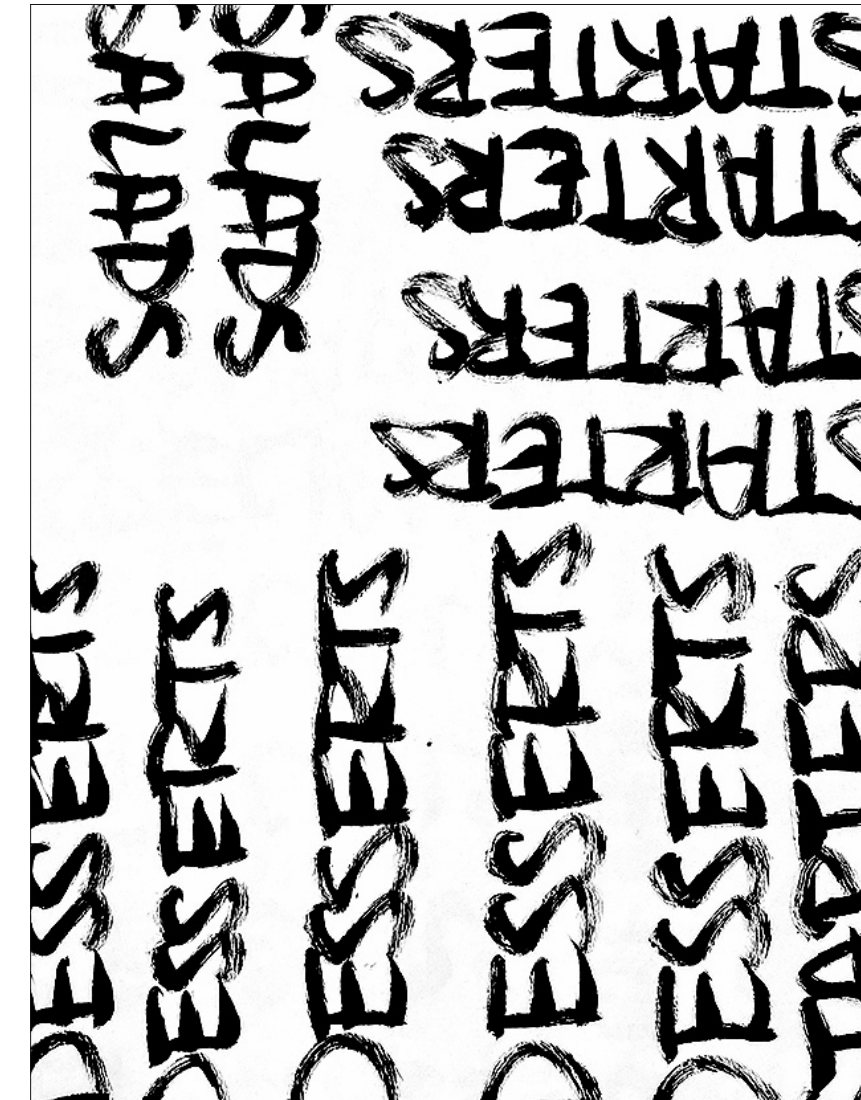 SALADS
SALADS
STARTERS
STARTERS
STARTERS
STARTERS
DESSERTS
DESSERTS
DESSERTS
DESSERTS
DESSERTS
STARTERS